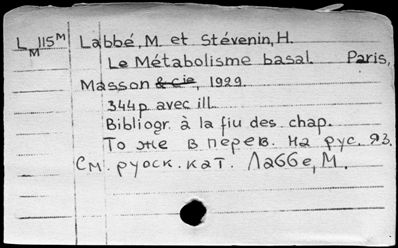 L M 115м Labbé, M. et Stévenin, H.
Le Métabolisme basal. Paris,
Masson & cie, 1929.
344p avec ill.
Bibliogr. à la fiu des chap.
То же в перев. на рус. яз.
См. руоск. кат. Лаббе, М.